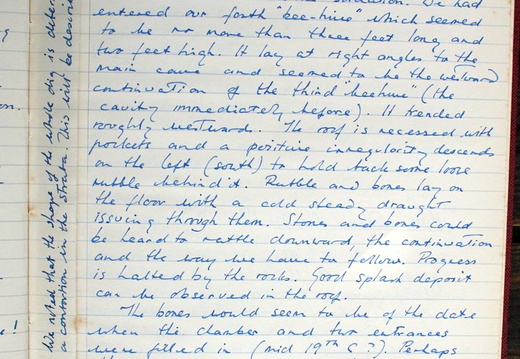 We had
entered our fourth "bee-hive" which seemed
to be no more than three feet long and
two feet high. It lay at right angles to the
main cave and seemed to be the westward
continuation of the third "beehive" (the
cavity immediately before). It trended
roughly westward. The roof is recessed with
pockets and a positive irregularity descends
on the left (south) to hold back some loose
rubble behind it. Rubble and bones lay on
the floor with a cold steady draught
issuing through them. Stones and bones could
be heard to rattle downward, the continuation
and the way we have to follow. Progress
is halted by the rocks. Good splash deposit
can be observed in the roof.
The bones would seem to be of the date
when the chamber and two entrances
were filled in (mid 19th C?). Perhaps
We noted that the shape of the whole dig is
a contortion in the strata. This will be
on.
e!